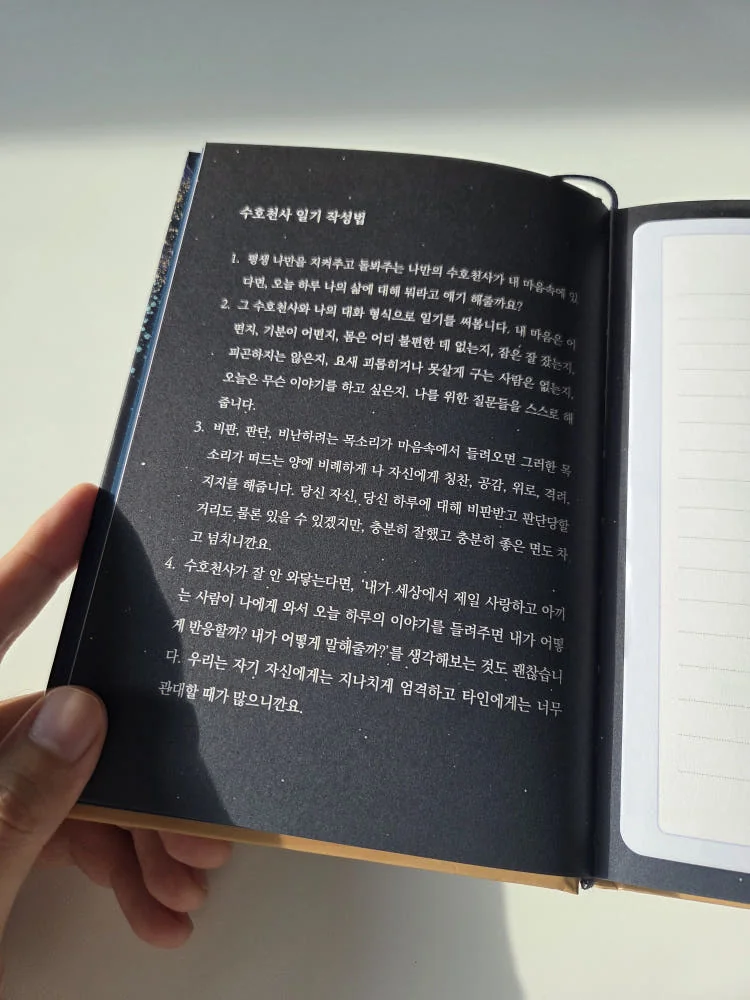 수호천사 일기 작성법
1. 평생 나만을 지켜주고 돌봐주는 나만의 수호천사가 내 마음속에 있
다면, 오늘 하루 나의 삶에 대해 뭐라고 얘기 해줄까요?
2. 그 수호천사와 나의 대화 형식으로 일기를 써봅니다. 내 마음은 어
떤지, 기분이 어떤지, 몸은 어디 불편한 데 없는지, 잠은 잘 잤는지,
피곤하지는 않은지, 요새 괴롭히거나 못살게 구는 사람은 없는지,
오늘은 무슨 이야기를 하고 싶은지. 나를 위한 질문들을 스스로 해
줍니다.
3. 비판, 판단, 비난하려는 목소리가 마음속에서 들려오면 그러한 목
소리가 떠드는 양에 비례하게 나 자신에게 칭찬, 공감, 위로, 격려,
지지를 해줍니다. 당신 자신, 당신 하루에 대해 비판받고 판단당할
거리도 물론 있을 수 있겠지만, 충분히 잘했고 충분히 좋은 면도 차
고 넘치니깐요.
4. 수호천사가 잘 안 와닿는다면, '내가 세상에서 제일 사랑하고 아끼
는 사람이 나에게 와서 오늘 하루의 이야기를 들려주면 내가 어떻
게 반응할까? 내가 어떻게 말해줄까?'를 생각해보는 것도 괜찮습니
다. 우리는 자기 자신에게는 지나치게 엄격하고 타인에게는 너무
관대할 때가 많으니깐요.